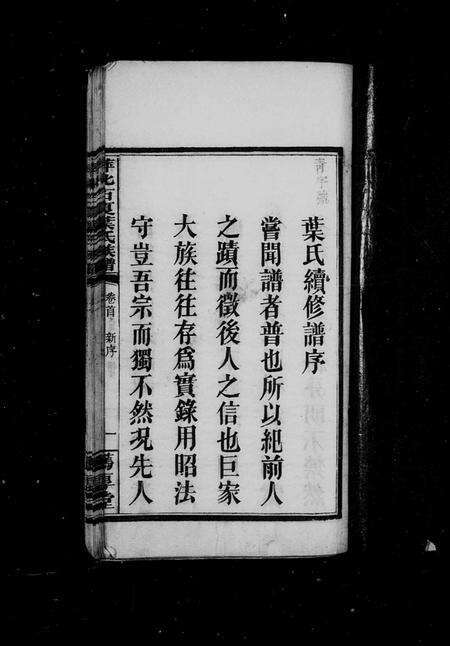 葉氏續修譜序
嘗聞譜者普也所以紀前人
之蹟而徵後人之信也巨家
大族往往存為實錄用昭法
守豈吾宗而獨不然況先人
葉氏族譜
卷首
新序
一
堂